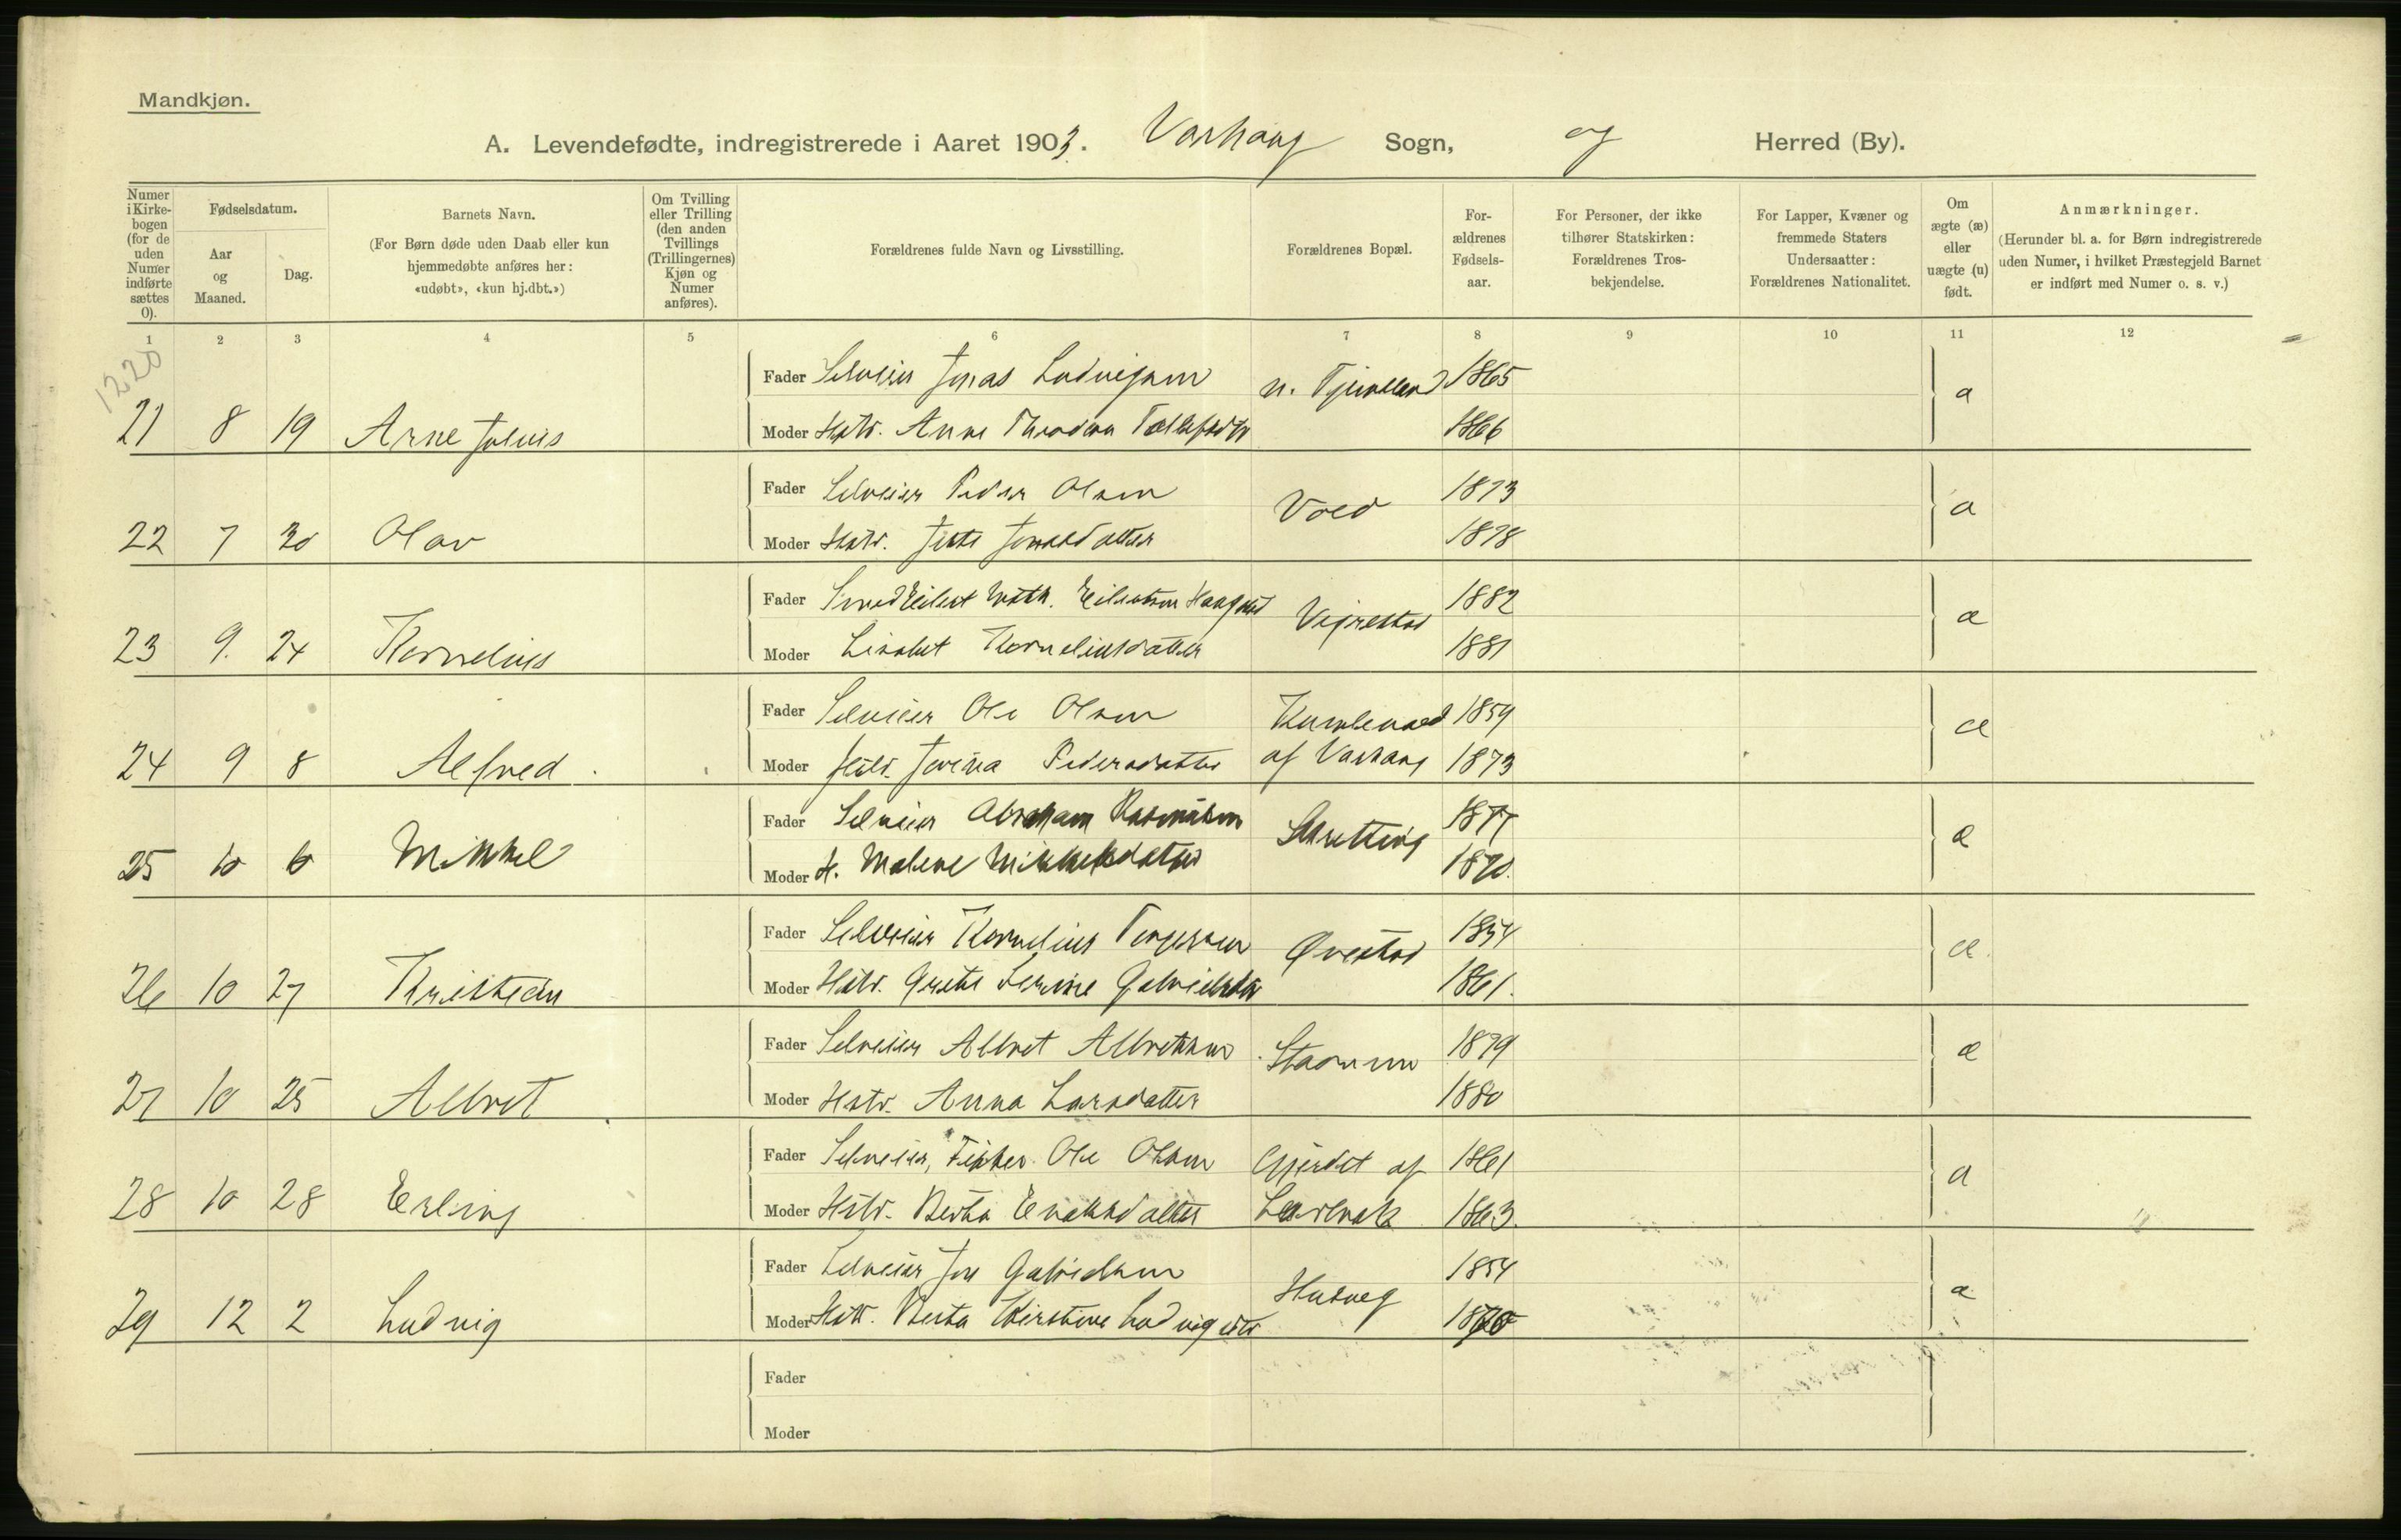 Mandkjøn.
A. Levendefødte, indregistrerede i Aaret 1903. Varhaug Sogn, og Herred (By).
Numer i Kirkebogen (for de uden Numer indførte sættes 0).
Fødselsdatum.
Aar og Maaned.
Dag.
Barnets Navn.
(For Børn døde uden Daab eller kun hjemmedøbte anføres her: «udøbt», «kun hj.dbt.»)
Om Tvilling eller Trilling (den anden Tvillings (Trillingernes) Kjøn og Numer anføres).
Forældrenes fulde Navn og Livsstilling.
Forældrenes Bopæl.
Forældrenes Fødselsaar.
For Personer, der ikke tilhører Statskirken: Forældrenes Trosbekjendelse.
For Lapper, Kvæner og fremmede Staters Undersaatter: Forældrenes Nationalitet.
Om ægte (æ) eller uægte (u) født.
Anmærkninger.
(Herunder bl. a. for Børn indregistrerede uden Numer, i hvilket Præstegjeld Barnet er indført med Numer o. s. v.)
1 2 3 4 5 6 7 8 9 10 11 12
1220
Fader Selveier Jonas Ludvigsen 1865 æ
21 8 19 Arne Julius Moder Hstr. Anne Theodora 1866
Fader Selveier Peder Olsen 1873 æ
22 7 30 Olav Moder Hstr. Jonasdatter 1878
Fader Smed Eilert Eilertsen Vigrestad 1882 æ
23 9. 24 Kornelius Moder Lisabet Korneliusdatter 1881
Fader Selveier Ole Olsen 1859 æ
24 9 8 Alfred Moder Hstr. Pedersdatter af Varhaug 1873
Fader Selveier Abraham Rasmussen Skretting 1877 æ
25 10 6 Mikkel Moder H. Malene Mikkelsdatter 1870.
Fader Selveier Kornelius 1854 æ
26 10 27 Kristian Moder Hstr. Grete Serine 1861.
Fader Selveier Albret Albretsen 1879 æ
27 10 25 Albret Moder Hstr. Anna Larsdatter 1880
Fader Selveier, Fisker Ole Olsen Gjerdet af 1861 æ
28 10 28 Erling Moder Hstr. Berta Enoksdatter 1863.
Fader Selveier Gabrielsen Husveg 1854 æ
29 12 2 Ludvig Moder Hstr. Berta Kirstine Ludvigsdtr
Fader
Moder